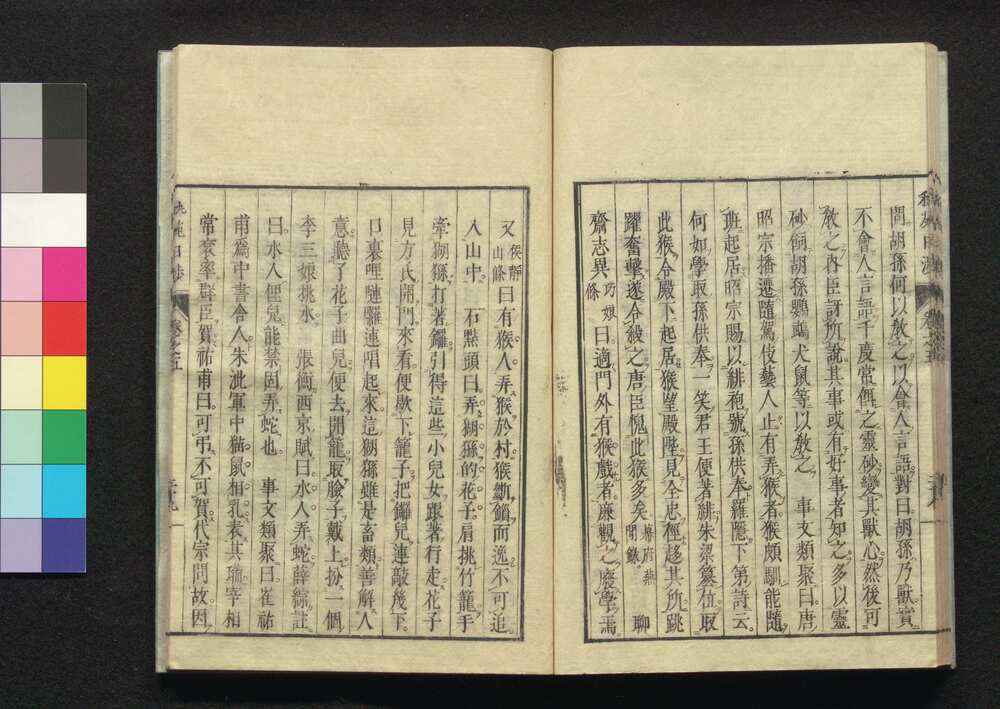 間胡孫何以敎之以會人言語對曰胡孫乃獸實
不會人言語千慶常餌之靈砂變其獸心然後可
敎之內臣訝所說其事或有好事者知之多以靈
砂飼胡孫鸚鵡犬鼠等以敎之 事文類聚曰唐
昭宗播遷隨駕伎藝人止有弄猴者猴頗馴能隨
班起居昭宗賜以緋袍號孫供奉羅隱下第詩云
何如學取孫供奉一笑君王便著緋朱梁纂位取
此猴令殿下起居猴望殿陛見全忠徑趍其所跳
躍奮擊遂令殺之唐臣愧此猴多矣幕府燕閒錄 聊
齋志異巧娘條曰適門外有猴戲者廉觀之廢學焉
又侯靜山條曰有猴人弄猴於村猴斷鎖而逸不可追
入山中 石點頭曰弄猢猻的花子肩挑竹籠手
牽猢猻打著鑼引得這些小兒女跟著行走花子
見方氏開門來看便歇下籠子把鑼兒連敲幾下
口裏哩嗹囉連唱起來這猢猻雖是畜類善解人
意聽了花子曲兒便去開籠取臉子戴上扮一個
李三娘挑水 張衡西京賦曰水人弄蛇薛綜註
曰水人俚兒能禁固弄蛇也 事文類聚曰崔祐
甫爲中書舍人朱泚軍中猫鼠相乳表其瑞宰相
常袞率群臣賀祐甫曰可弔不可賀代宗問故因